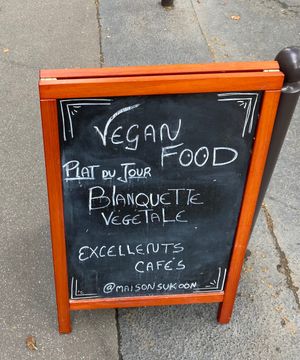 VEGAN
FOOD
PLAT DU JOUR
BLANQUETTE
VEGETALE
EXCELLENTS
CAFE'S
@MAISONSUKOON